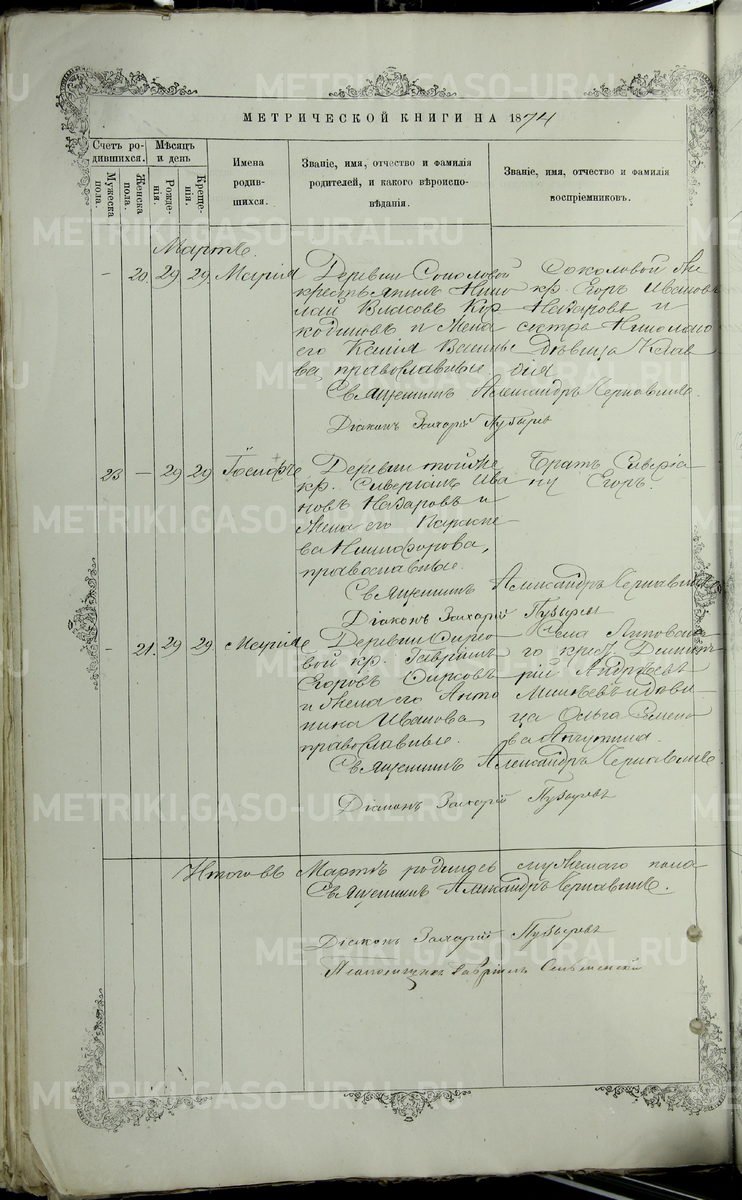 МЕТРИЧЕСКОЙ КНИГИ НА 1874
Счетъ родившихся.
Мужеска пола.
Женска пола.
Мѣсяцъ и день
Рожденія.
Крещенія.
Имена родившихся.
Званіе, имя, отчество и фамилія родителей, и какого вѣроисповѣданія.
Званіе, имя, отчество и фамилія воспріемниковъ.
Марта.
— 20. 29 29 Марія
Деревни Соколовой
крестьянинъ Нико
лай Власовъ
и жена
его Ксенія
ва, православные
Соколовой же
кр. Егоръ Ивановъ
Назаровъ и
сестра Николаю
дѣвица Клав
дія
Священникъ Александръ Чернавинъ
Діаконъ Захарій Пузыревъ
23 — 29 29
Деревни той же
кр. Северіанъ Ива
новъ Назаровъ и
жена его Параске
ва Никифорова,
православные.
Братъ Северіа
ну Егоръ.
Священникъ Александръ Чернавинъ
Діаконъ Захарій Пузыревъ
— 21. 29 29 Марія
Деревни
вой кр. Гавріилъ
Егоровъ Фирсовъ
и жена его Анто
нина Иванова
православные.
Села
го крест. Димит
рій Андреевъ
и дѣви
ца Ольга Семено
ва
Священникъ Александръ Чернавинъ.
Діаконъ Захарій Пузыревъ
Итого въ Мартѣ родилось мужескаго пола
Священникъ Александръ Чернавинъ.
Діаконъ Захарій Пузыревъ
Псаломщикъ Гавріилъ
METRIKI.GASO-URAL.RU